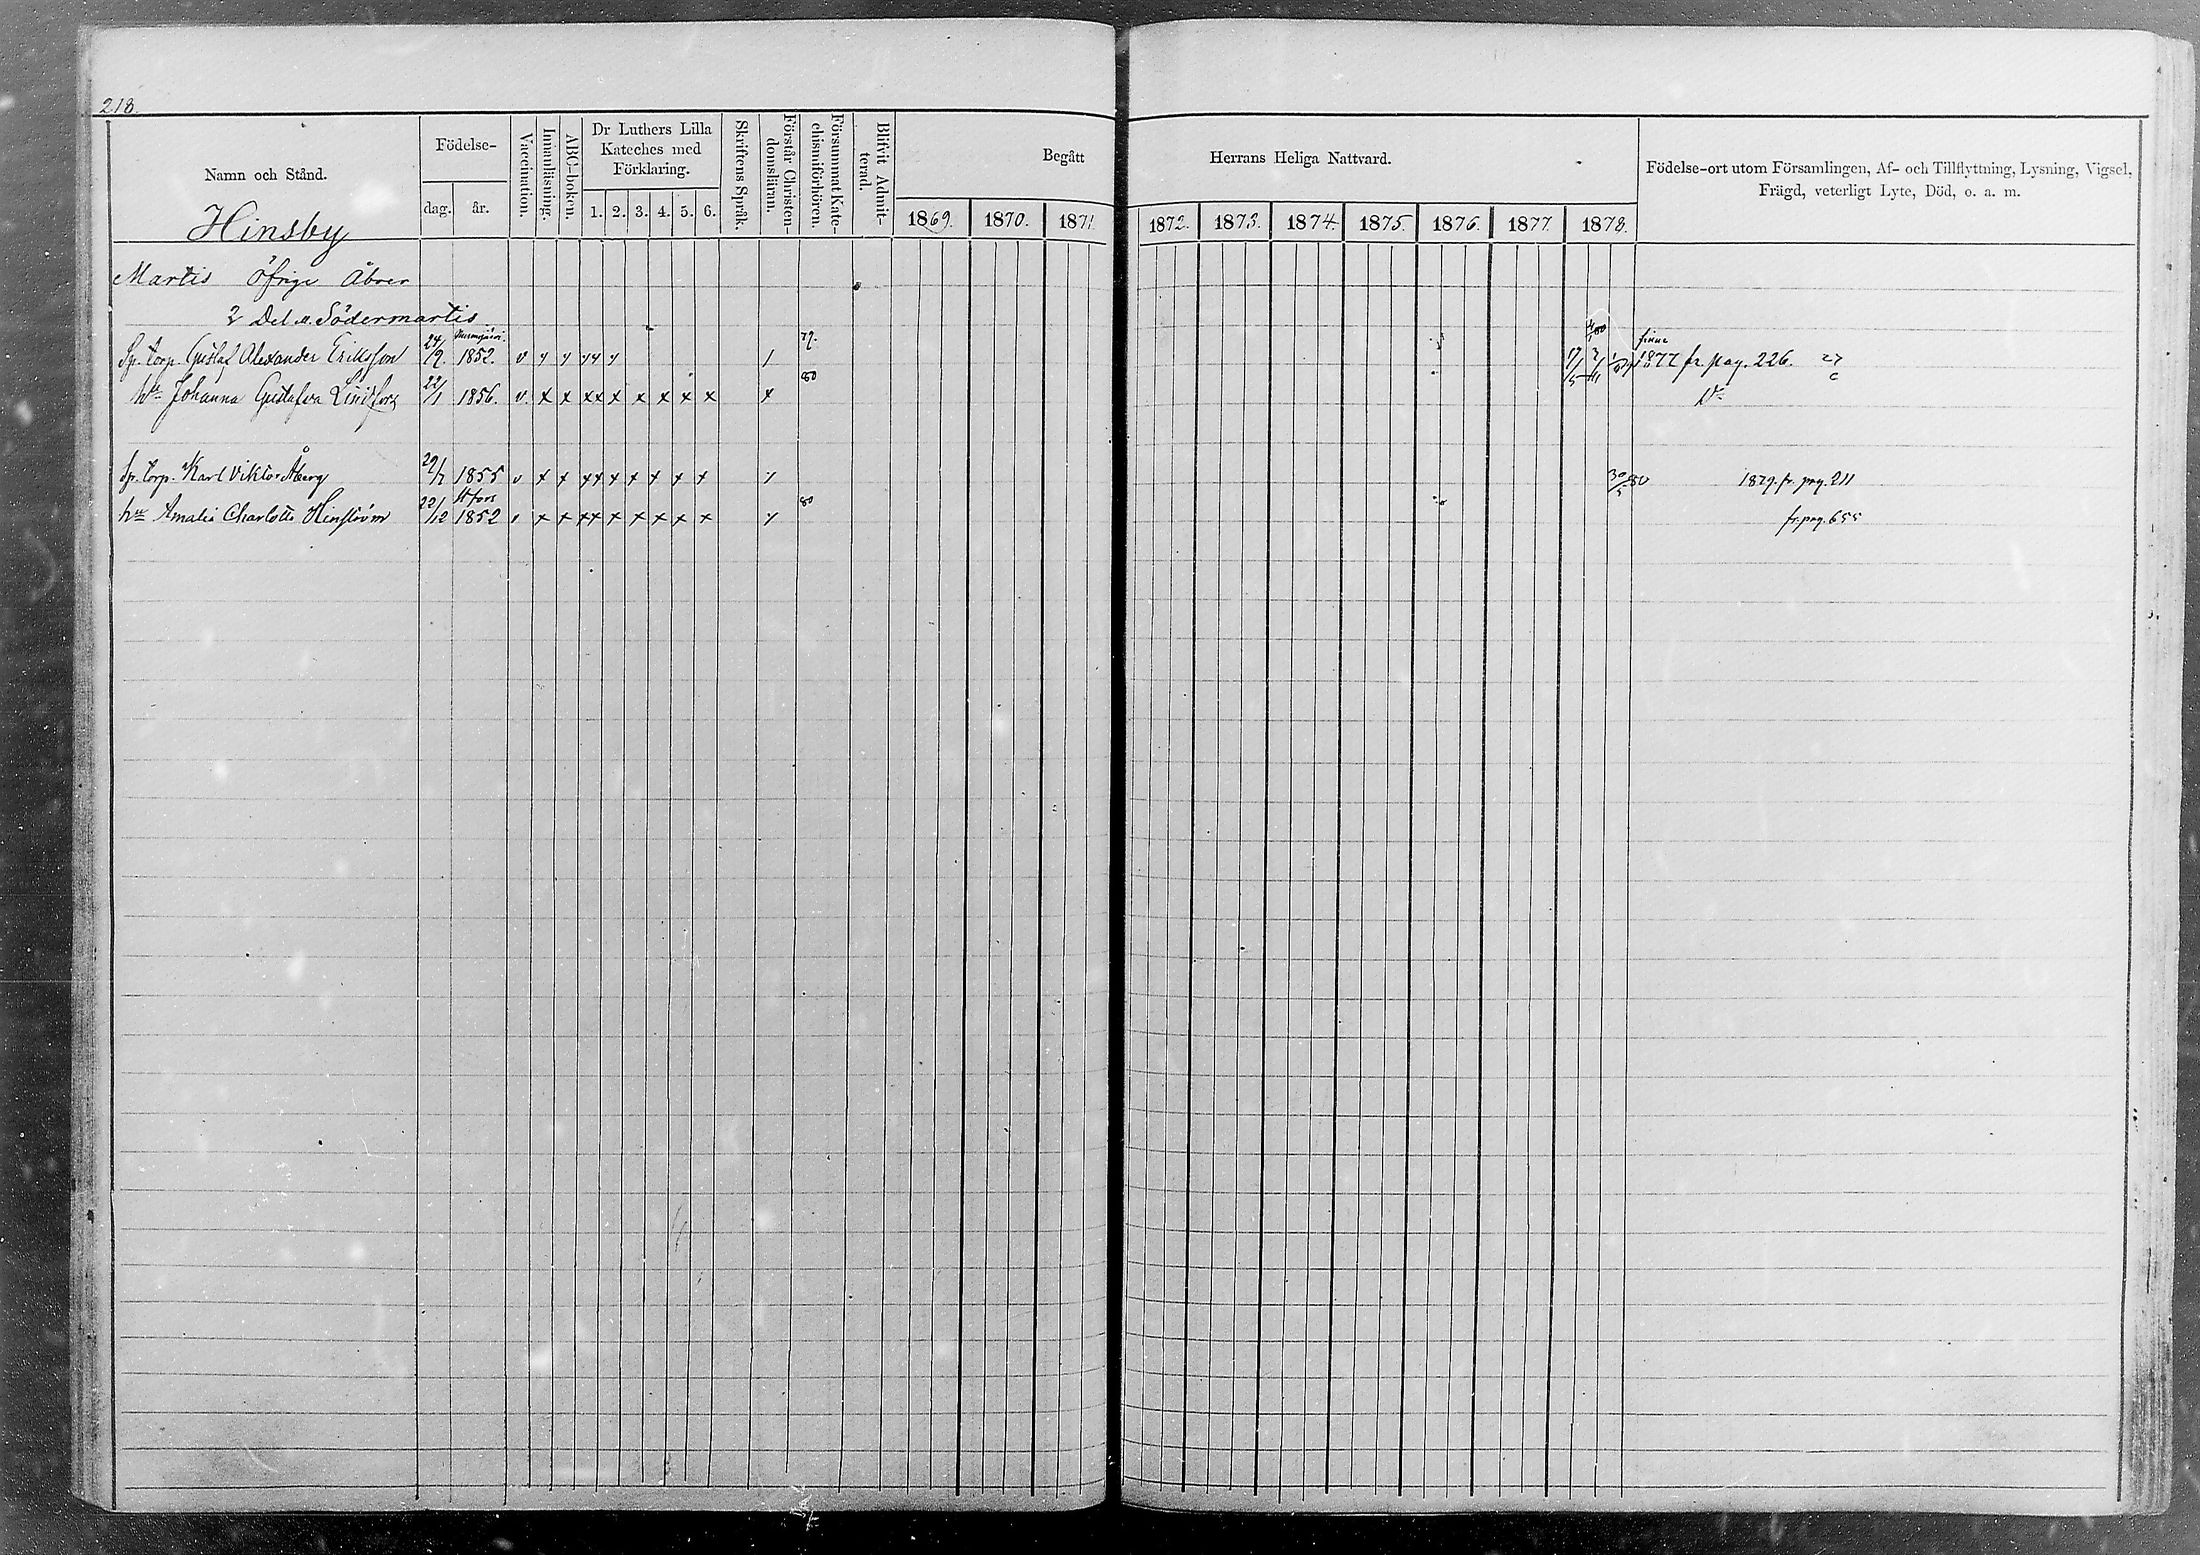 218.
Namn och Stånd.
Födelse-
dag.
år.
Vaccination.
Innanläsning.
ABC-boken.
Dr Luthers Lilla
Kateches med
Förklaring.
1. 2. 3. 4. 5. 6.
Skriftens Språk.
Förstår Christen-
domsläran.
Försummat Kate-
chismiförhören.
Blifvit Admit-
terad.
Begått Herrans Heliga Nattvard.
1869. 1870. 1871. 1872. 1873. 1874. 1875. 1876. 1877. 1878.
Födelse-ort utom Församlingen, Af- och Tillflyttning, Lysning, Vigsel,
Frägd, veterligt Lyte, Död, o. a. m.
Hinsby
Martis öfrige Åboer
2 Del. Södermartis
Sp. torp. Gustaf Alexander Eriksson 24/9. 1852. v 79. finne 1877 fr. pag. 226.
hu Johanna Gustafva Lindfors 22/1 1856. v. x x x x x x x x x x 80
Sp. torp. Karl Viktor Åberg 29/7 1855 v x x x x x x x x x 30/5 80 1879. fr. pag. 211
H:fors
hu Amalia Charlotta Hinström 22/12 1852 x x x x x x x x x 80 fr. pag. 655